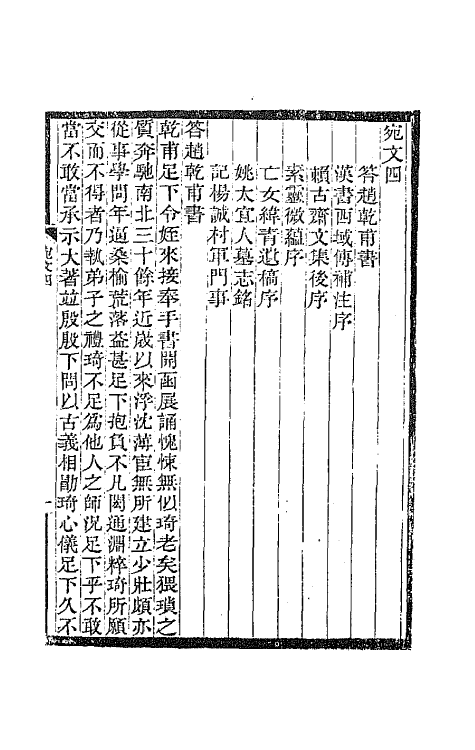 宛文四
答趙乾甫書
漢書西域傳補注序
賴古齋文集後序
素靈微蘊序
亡女緯青遺稿序
姚太宜人墓志銘
記楊誠村軍門事
答趙乾甫書
乾甫足下令姪來接奉手書開函展誦愧悚無似琦老矣猥瑣之
質奔馳南北三十餘年近歲以來浮沈薄宦無所建立少壯頗亦
從事學問年逼桑榆荒落益甚足下抱負不凡閎通淵粹琦所願
交而不得者乃執弟子之禮琦不足爲他人之師況足下乎不敢
當不敢當承示大著竝殷殷下問以古義相勖琦心儀足下久不
宛文四
一